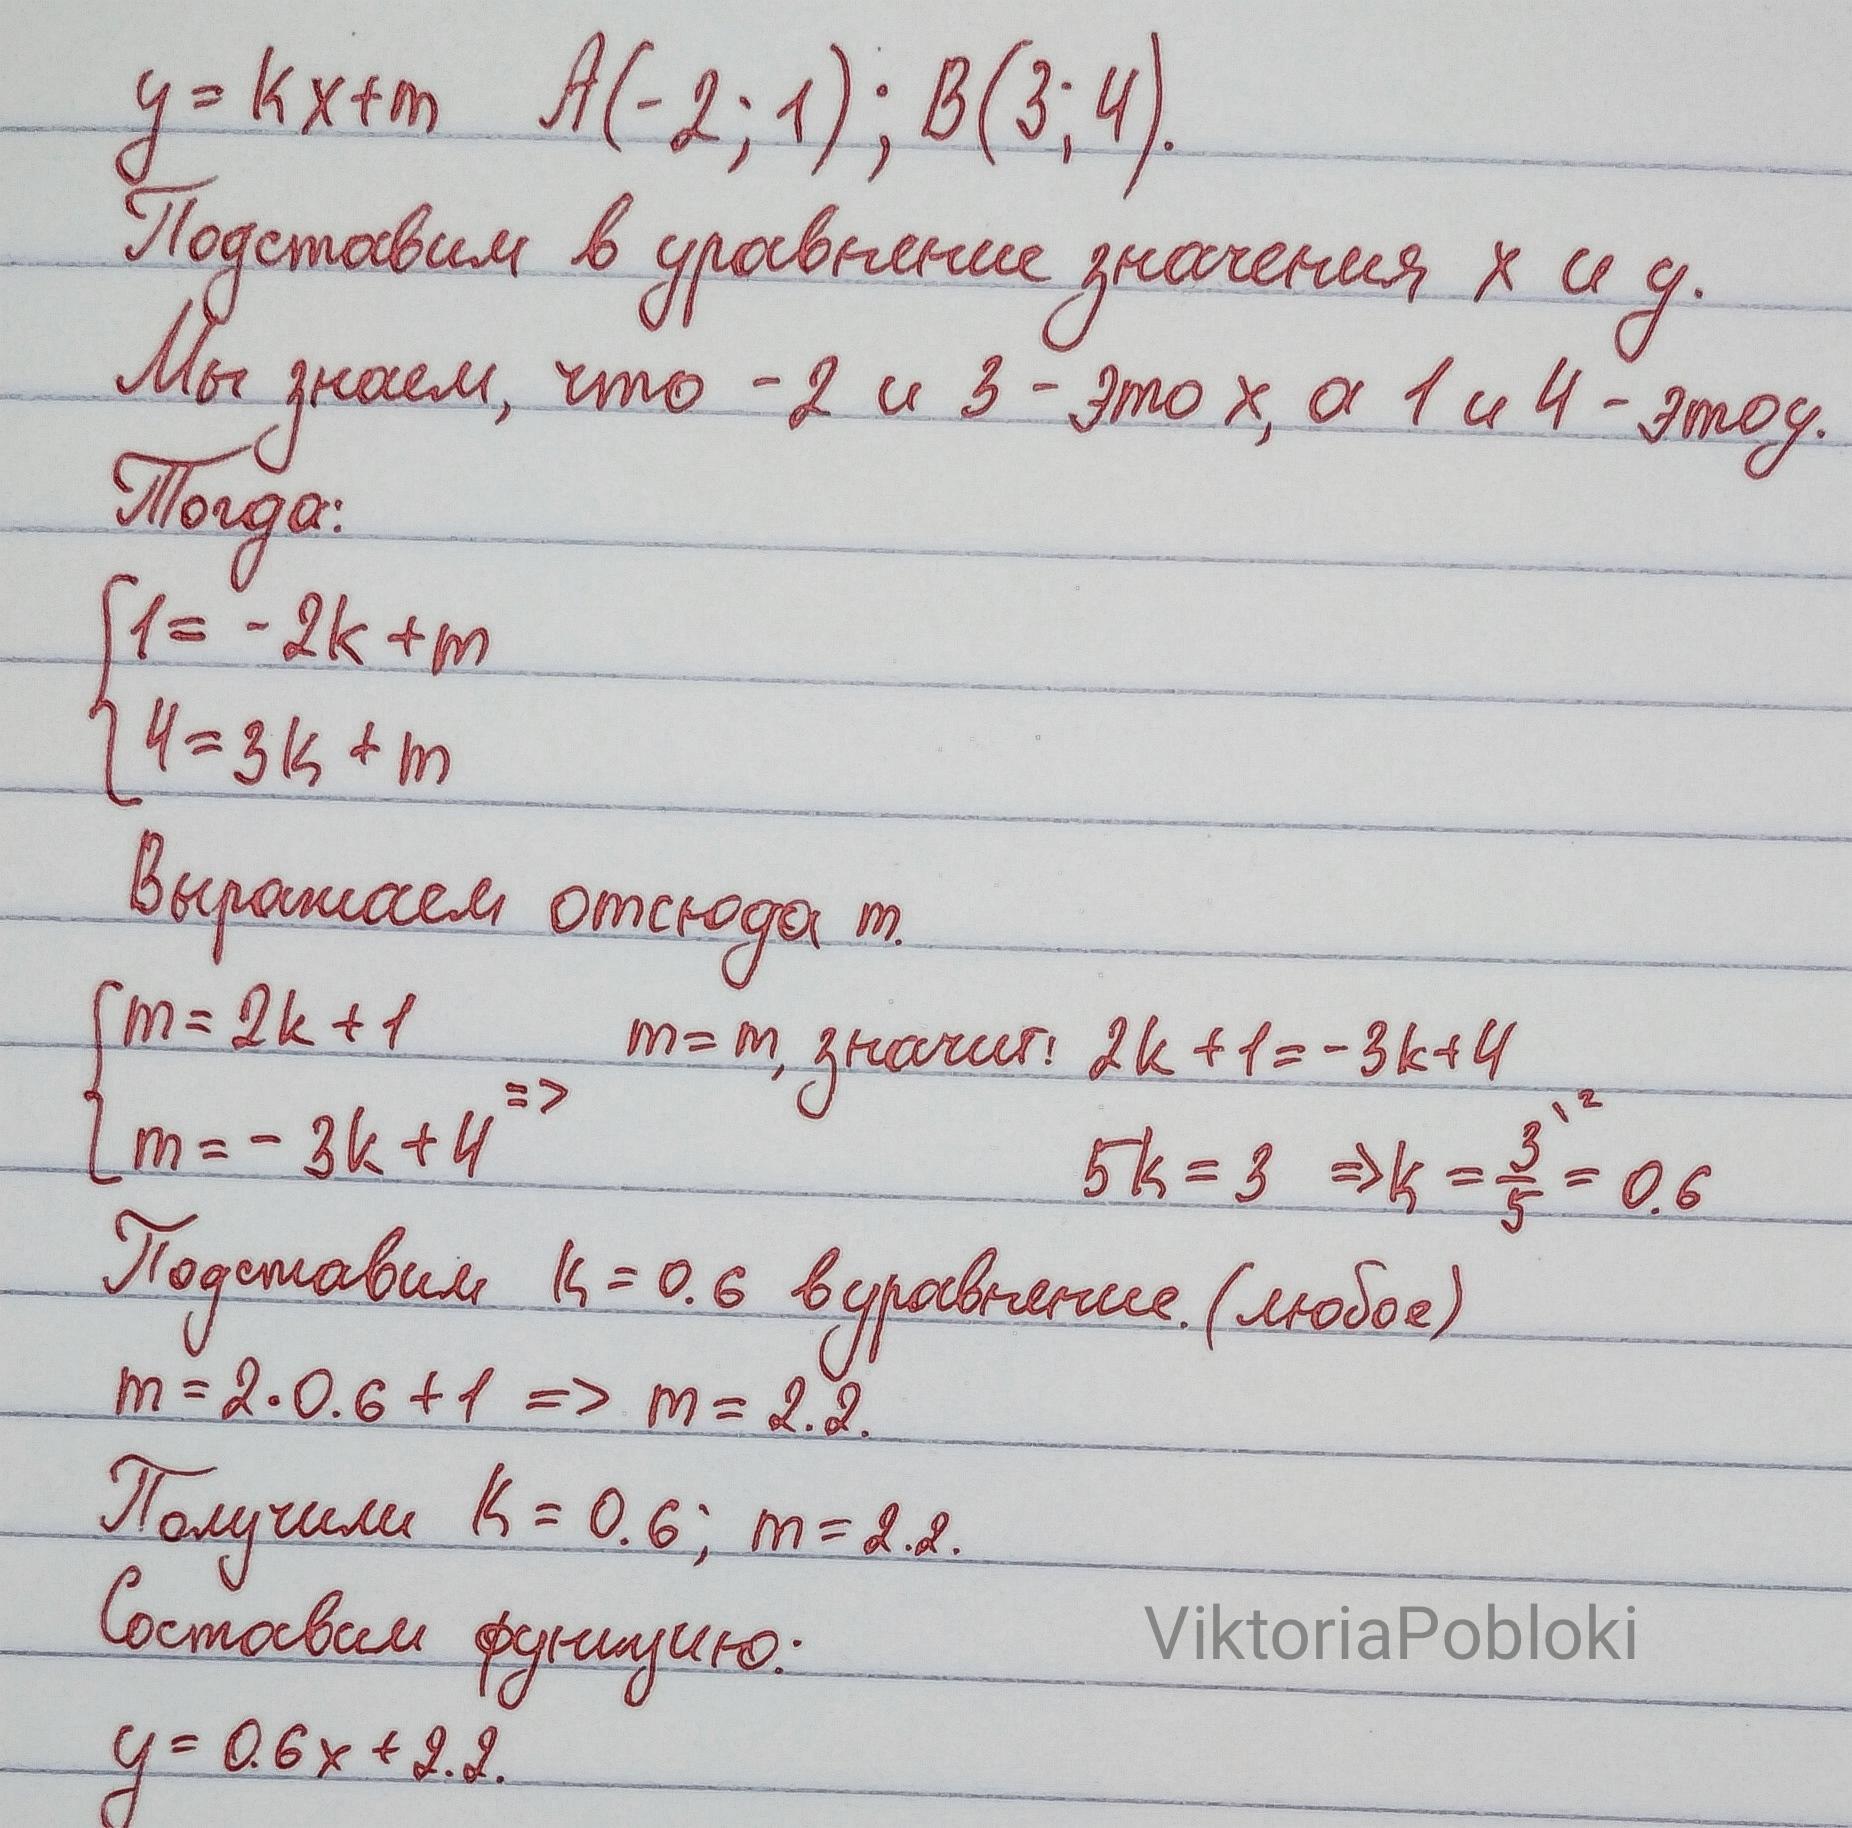 y = kx+m A(-2; 1); B(3; 4).
Подставим в уравнение значения x и y.
Мы знаем, что -2 и 3 - это x, а 1 и 4 - это y.
Тогда:
1 = -2k + m
4 = 3k + m
Выражаем отсюда m.
m = 2k + 1 m = m, значит: 2k + 1 = -3k + 4
m = - 3k + 4 => 5k = 3 => k = 3\2/5 = 0.6
Подставим k = 0.6 в уравнение. (любое)
m = 2·0.6 + 1 => m = 2.2.
Получили k = 0.6; m = 2.2.
Составим функцию:
ViktoriaPobloki
y = 0.6x + 2.2.